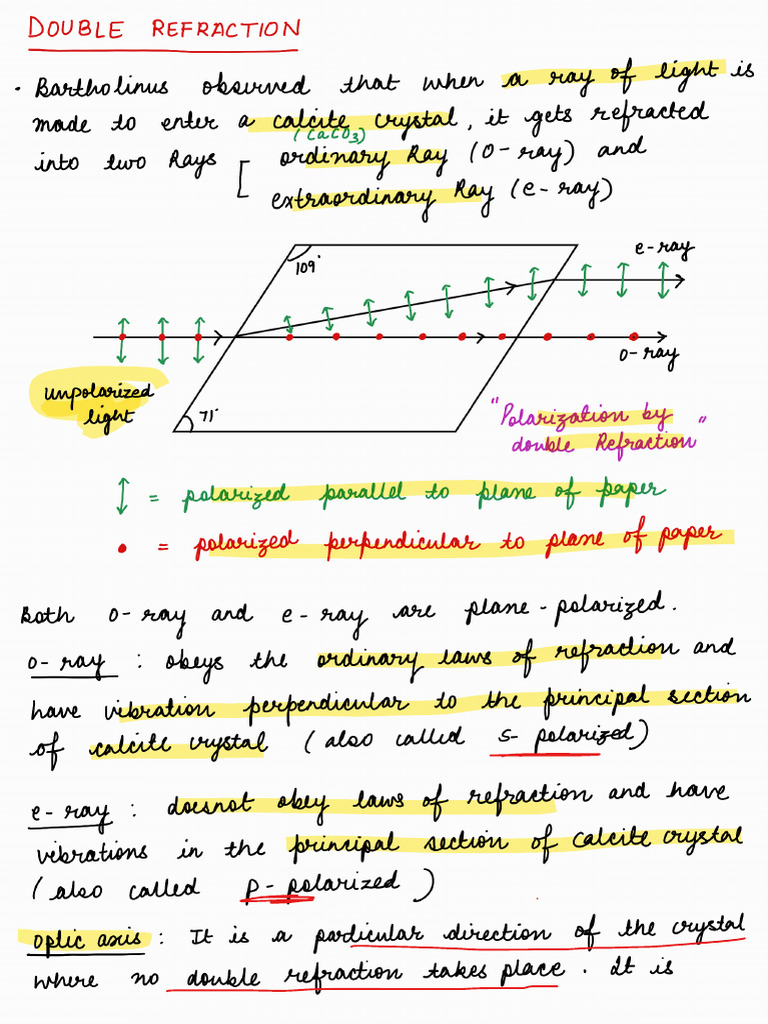 DOUBLE REFRACTION
· Bartholinus observed that when a ray of light is
made to enter a calcite crystal, it gets refracted
(CaCO3)
into two Rays [ ordinary Ray (O-ray) and
extraordinary Ray (e-ray)
109°
e-ray
o-ray
unpolarized
light
71°
"Polarization by
double Refraction"
↕ = polarized parallel to plane of paper
• = polarized perpendicular to plane of paper
Both o-ray and e-ray are plane-polarized.
o-ray : obeys the ordinary laws of refraction and
have vibration perpendicular to the principal section
of calcite crystal (also called s-polarized)
e-ray : doesnot obey laws of refraction and have
vibrations in the principal section of calcite crystal
(also called p-polarized)
optic axis : It is a particular direction of the crystal
where no double refraction takes place. It is